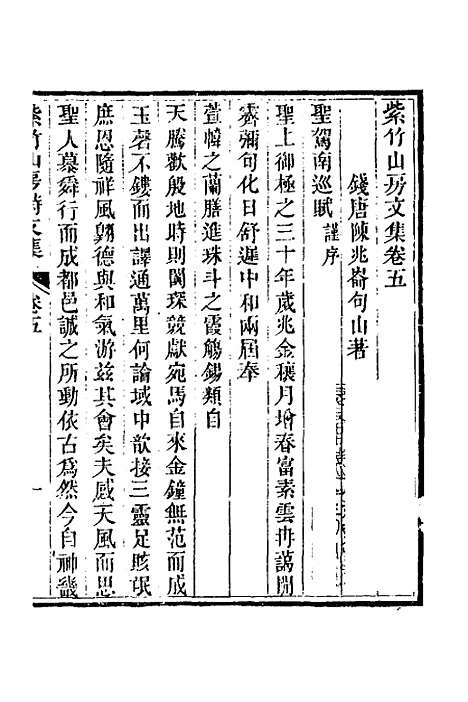 紫竹山房文集卷五
錢唐陳兆崙句山著
聖駕南巡賦謹序
聖上御極之三十年歲兆金穰月增春富素雲冉萬閒
霽彌旬化日舒遲中和兩屆奉
萱幃之蘭膳進珠斗之霞觴錫類自
天騰歡般地時則閩琛競獻宛馬自來金鐘無范而成
玉磬不鏤而出譯通萬里何論域中歆接三靈足賅氓
庶恩隨祥風翺德與和氣游茲其會矣夫感天風而思
聖人慕舜行而成都邑誠之所動依古爲然今自神畿
紫竹山房詩文集
卷五
一